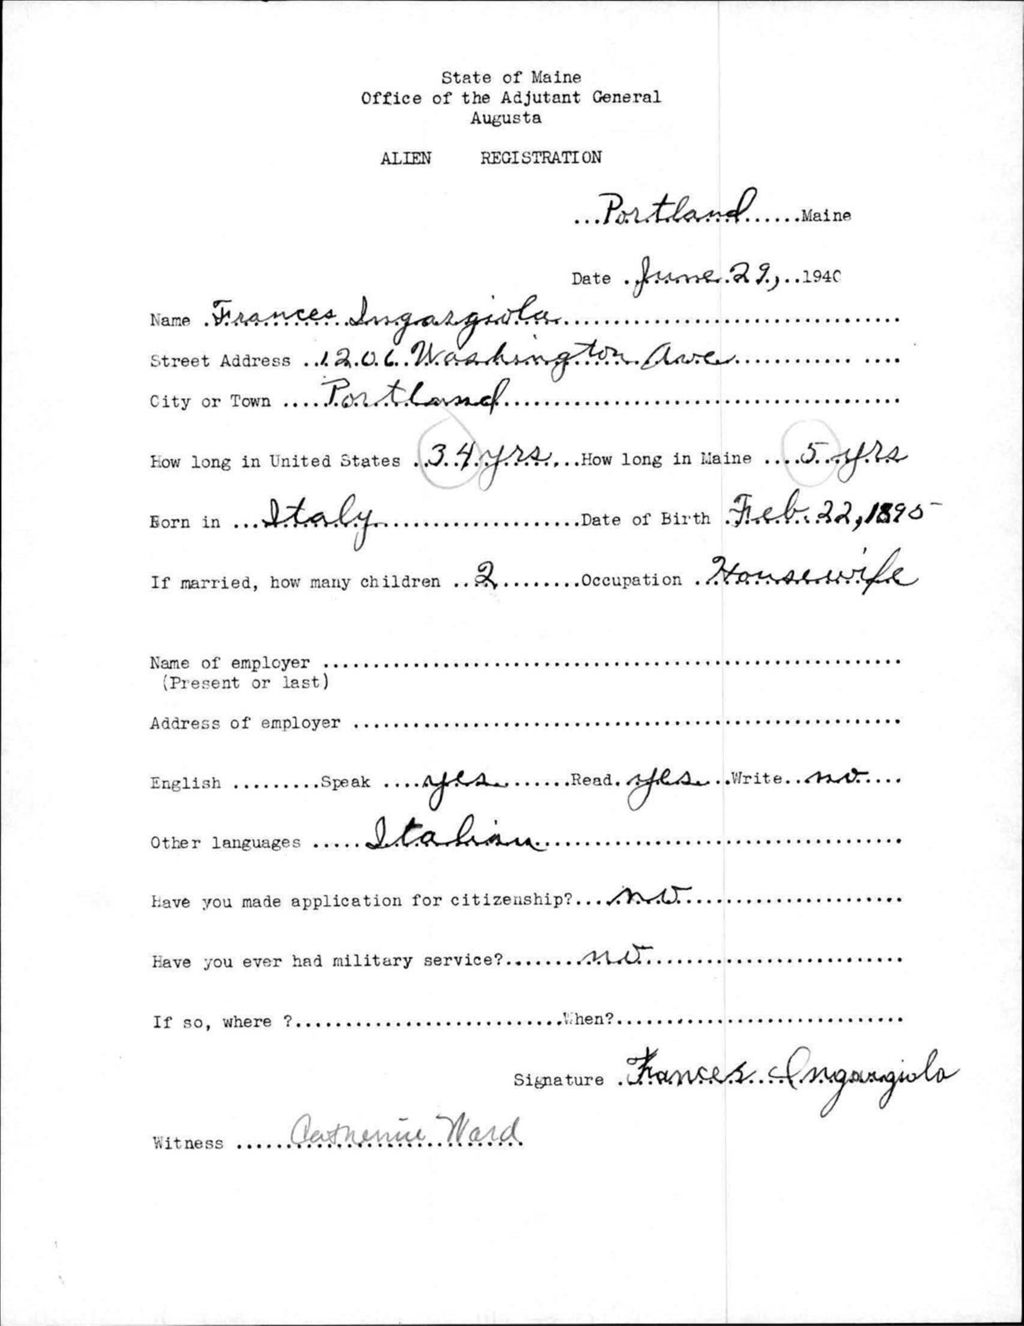 State of Maine
Office of the Adjutant General
Augusta
ALIEN REGISTRATION
...Portland......Maine
Date .June.29,..1940
Name .Frances Ingargiola........................................
Street Address ..1206 Washington Ave.................. ....
City or Town ....Portland................................................
How long in United States ..34 yrs....How long in Maine ....5 yrs
Born in ...Italy........................Date of Birth .Feb. 22, 1895
If married, how many children ..2.........Occupation .Housewife
Name of employer ....................................................................
(Present or last)
Address of employer ................................................................
English .........Speak ....yes.......Read.yes...Write..no....
Other languages .....Italian..........................................
Have you made application for citizenship?...no.........................
Have you ever had military service?........no..............................
If so, where ?...............................When?..................................
Signature .Frances Ingargiola
Witness ......Catherine Ward